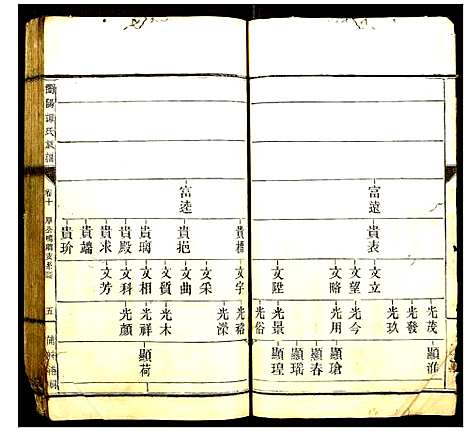 富遠
貴表
文立
文望
文略
文陞
光茂
光發
光玖
光今
光用
光景
光俗
顯淮
顯瑲
顯春
顯瑤
顯瑝
富逵
貴桓
貴挹
貴璃
貴殿
貴求
貴端
貴玠
文字
文采
文曲
文質
文相
文科
文芳
光裕
光濚
光木
光祥
光顏
顯荷
瀏陽譚氏族譜
卷十
五